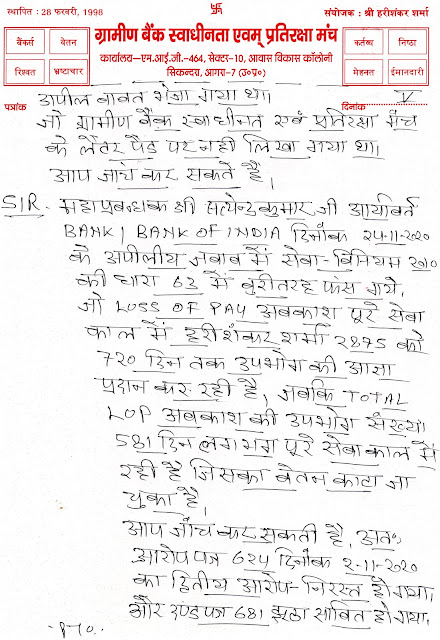 स्थापित : 28 फरवरी, 1998
संयोजक : श्री हरीशंकर शर्मा
बैंकर्स वेतन
रिश्वत भ्रष्टाचार
ग्रामीण बैंक स्वाधीनता एवम् प्रतिरक्षा मंच
कार्यालय–एम.आई.जी.-464, सेक्टर-10, आवास विकास कॉलोनी
सिकन्दरा, आगरा-7 (उ०प्र०)
कर्तव्य निष्ठा
मेहनत ईमानदारी
पत्रांक
दिनांक V
अपील बाबत भेजा गया था।
जो ग्रामीण बैंक स्वाधीनता एवं प्रतिरक्षा मंच
के लैटर पैड पर नहीं लिखा गया था।
आप जांच कर सकते हैं,
SIR. महाप्रबन्धक श्री सत्येन्द्र कुमार जी आर्यावर्त
BANK | BANK OF INDIA दिनांक 24-11-2020
के अपीलीय जबाब में सेवा-विनियम 2010
की धारा 63 में बुरी तरह फंस गये,
जो LOSS OF PAY अवकाश पूरे सेवा
काल में हरीशंकर शर्मा 2875 को
720 दिन तक उपभोग की आज्ञा
प्रदान कर रही है, जबकि TOTAL
LOP अवकाश की उपभोग संख्या
581 दिन लगभग पूरे सेवा काल में
रही है जिसका वेतन काटा जा
चुका है,
आप जाँच कर सकती है, अतः
आरोप पत्र 624 दिनांक 2-11-2020
का द्वितीय आरोप- निरस्त हो गया,
और दण्ड पत्र 681 झूठा साबित हो गया,
-PTO.